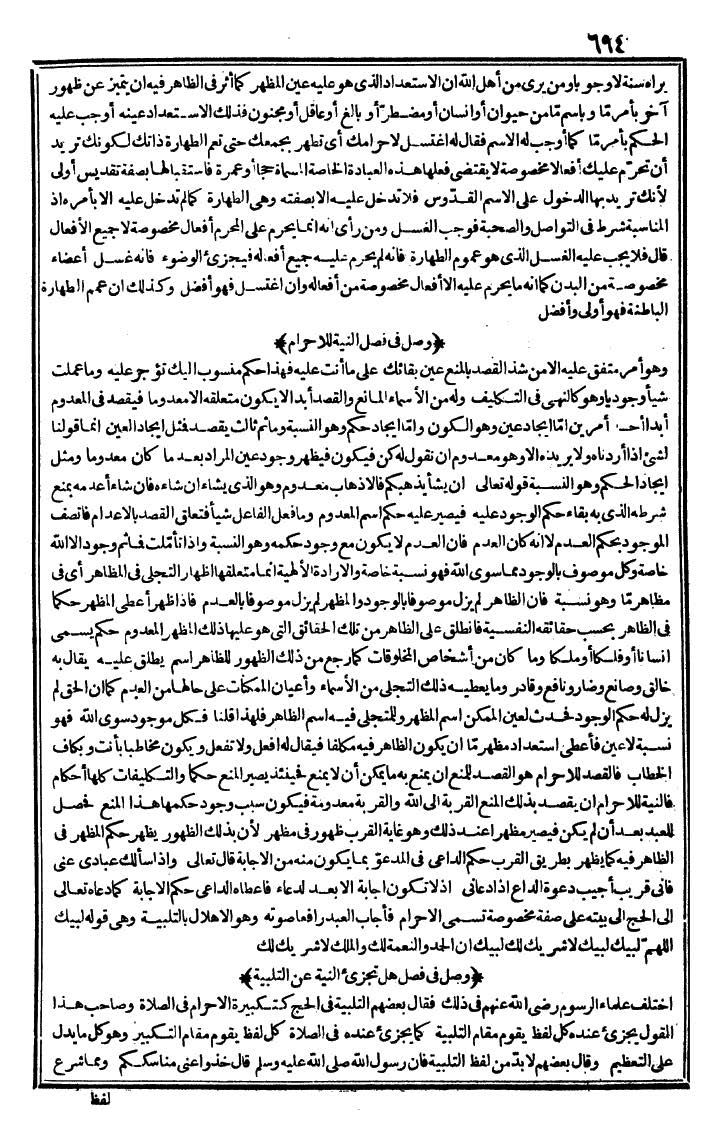 ٦٩٤
يراه سنة لا وجوبا ومن يرى من أهل الله ان الاستعداد الذى هو عليه عين المظهر كما أثر فى الظاهر فيه ان يتميز عن ظهور
آخر بأمر مّا وباسم مّا من حيوان أو انسان أو مضطرّ أو بالغ أو عاقل أو مجنون فذلك الاستعداد عينه أوجب عليه
الحكم بأمر مّا كما أوجب له الاسم فقال له اغتسل لاحرامك أى تطهر بجمعك حتى تعم الطهارة ذاتك لكونك تريد
أن تحرّم عليك أفعالا مخصوصة لا يقتضى فعلها هذه العبادة الخاصة المسماة حجا أو عمرة فاستقبالها بصفة تقديس أولى
لأنك تريد بها الدخول على الاسم القدّوس فلا تدخل عليه الا بصفته وهى الطهارة كما لم تدخل عليه الا بأمره اذ
المناسبة شرط فى التواصل والصحبة فوجب الغسل ومن رأى انه انما يحرم على المحرم أفعال مخصوصة لا جميع الأفعال
قال فلا يجب عليه الغسل الذى هو عموم الطهارة فانه لم يحرم عليه جميع أفعاله فيجزئ الوضوء فانه غسل أعضاء
مخصوصة من البدن كما انه ما يحرم عليه الا أفعال مخصوصة من أفعاله وان اغتسل فهو أفضل وكذلك ان عمم الطهارة
الباطنة فهو أولى وأفضل
﴿وصل فى فصل النية للاحرام﴾
وهو أمر متفق عليه الا من شذ القصد بالمنع عين بقائك على ما أنت عليه فهذا حكم منسوب اليك تؤجر عليه وما عملت
شيأ وجوديا وهو كالنهى فى التكليف وله من الأسماء المانع والقصد أبدا لا يكون متعلقه الا معدوما فيقصد فى المعدوم
أبدا أحد أمرين امّا ايجاد عين وهو الكون وامّا ايجاد حكم وهو النسبة وما ثم ثالث يقصد فمثل ايجاد العين انما قولنا
لشئ اذا أردناه ولا يريده الا وهو معدوم ان نقول له كن فيكون فيظهر وجود عين المراد بعد ما كان معدوما ومثل
ايجاد الحكم وهو النسبة قوله تعالى ان يشأ يذهبكم فالاذهاب معدوم وهو الذى يشاء ان شاءه فان شاء أعدمه بمنع
شرطه الذى به بقاء حكم الوجود عليه فيصير عليه حكم اسم المعدوم وما فعل الفاعل شيأ فتعلق القصد بالاعدام فاتصف
الموجود بحكم العدم لا انه كان العدم فان العدم لا يكون مع وجود حكمه وهو النسبة واذا تأمّلت فما ثم وجود الا الله
خاصة وكل موصوف بالوجود مما سوى الله فهو نسبة خاصة والارادة الالهية انما متعلقها اظهار التجلى فى المظاهر أى فى
مظاهر مّا وهو نسبة فان الظاهر لم يزل موصوفا بالوجود والمظهر لم يزل موصوفا بالعدم فاذا ظهر أعطى المظهر حكما
فى الظاهر بحسب حقائقه النفسية فانطلق على الظاهر من تلك الحقائق التى هو عليها ذلك المظهر المعدوم حكم يسمى
انسانا أو فلكا أو ملكا وما كان من أشخاص المخلوقات كما رجع من ذلك الظهور للظاهر اسم يطلق عليه يقال به
خالق وصانع وضار ونافع وقادر وما يعطيه ذلك التجلى من الأسماء وأعيان الممكنات على حالها من العدم كما ان الحق لم
يزل له حكم الوجود فحدث لعين الممكن اسم المظهر وللمتجلى فيه اسم الظاهر فلهذا قلنا فكل موجود سوى الله فهو
نسبة لا عين فأعطى استعداد مظهر مّا ان يكون الظاهر فيه مكلفا فيقال له افعل ولا تفعل ويكون مخاطبا بأنت وبكاف
الخطاب فالقصد للاحرام هو القصد للمنع ان يمنع به ما يمكن أن لا يمنع فحينئذ يصير المنع حكما والتكليفات كلها أحكام
فالنية للاحرام ان يقصد بذلك المنع القربة الى الله والقربة معدومة فيكون سبب وجود حكمها هذا المنع فحصل
للعبد بعد أن لم يكن فيصير مظهرا عند ذلك وهو غاية القرب ظهور فى مظهر لأن بذلك الظهور يظهر حكم المظهر فى
الظاهر فيه كما يظهر بطريق القرب حكم الداعى فى المدعوّ بما يكون منه من الاجابة قال تعالى واذا سألك عبادى عنى
فانى قريب أجيب دعوة الداع اذا دعانى اذ لا تكون اجابة الا بعد لدعاء فاعطاه الداعى حكم الاجابة كما دعاه تعالى
الى الحج الى بيته على صفة مخصوصة تسمى الاحرام فأجاب العبد رافعا صوته وهو الاهلال بالتلبية وهى قوله لبيك
اللهمّ لبيك لبيك لا شريك لك لبيك ان الحمد والنعمة لك والملك لا شريك لك
﴿وصل فى فصل هل تجزئ النية عن التلبية﴾
اختلف علماء الرسوم رضى الله عنهم فى ذلك فقال بعضهم التلبية فى الحج كتكبيرة الاحرام فى الصلاة وصاحب هذا
القول يجزئ عنده كل لفظ يقوم مقام التلبية كما يجزئ عنده فى الصلاة كل لفظ يقوم مقام التكبير وهو كل ما يدل
على التعظيم وقال بعضهم لا بدّ من لفظ التلبية فان رسول الله صلى الله عليه وسلم قال خذوا عنى مناسككم ومما شرع
لفظ